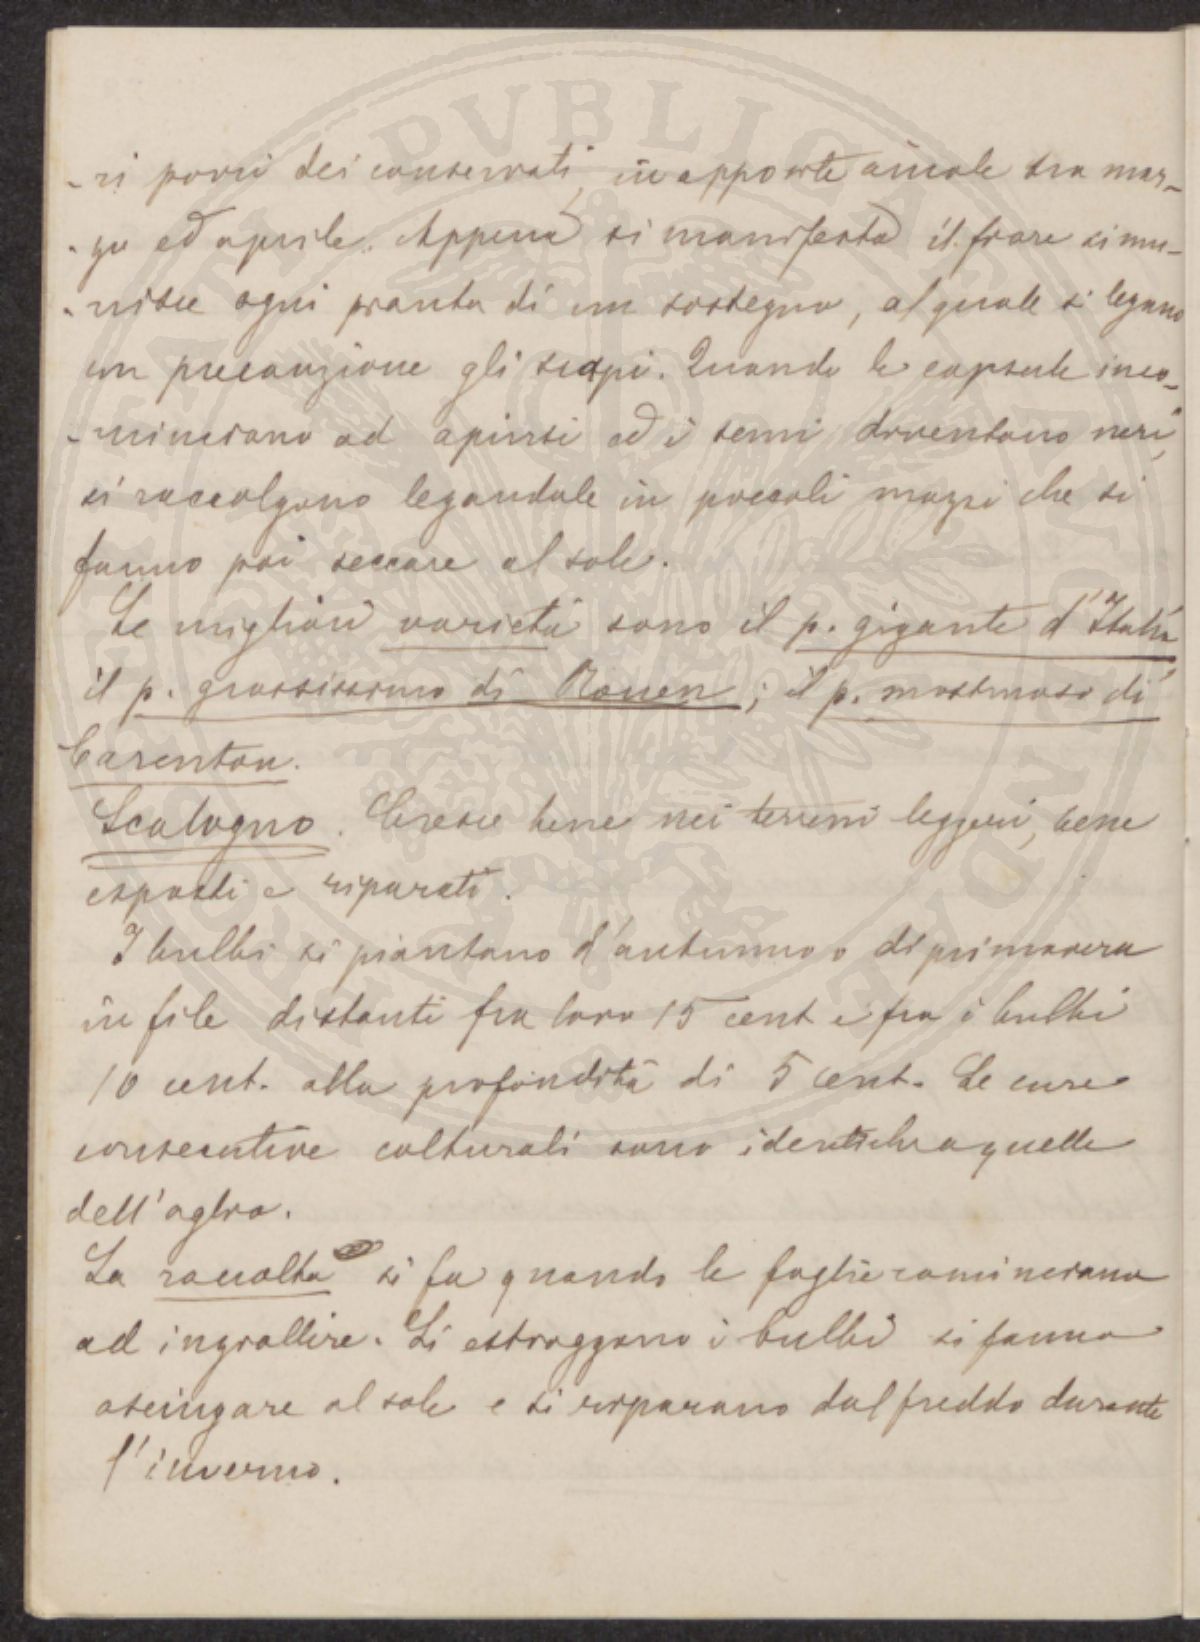 -ri porri dei conservati, in apposite aiuole tra mar-
-zo ed aprile. Appena si manifesta il fiore si mu-
-nisce ogni pianta di un sostegno, al quale si legano
con precauzione gli scapi. Quando le capsule inco-
-minciano ad aprirsi ed i semi diventano neri,
si raccolgono legandole in piccoli mazzi che si
fanno poi seccare al sole.
Le migliori varietà sono il p. gigante d'Italia,
il p. grossissimo di Rouen; il p. mostruoso di
Carentan.
Scalogno. Cresce bene nei terreni leggeri, bene
esposti e riparati.
I bulbi si piantano d'autunno o di primavera
in file distanti fra loro 15 cent e fra i bulbi
10 cent. alla profondità di 5 cent. Le cure
consecutive colturali sono identiche a quelle
dell'aglio.
La raccolta si fa quando le foglie cominciano
ad ingiallire. Si estraggono i bulbi si fanno
asciugare al sole e si riparano dal freddo durante
l'inverno.